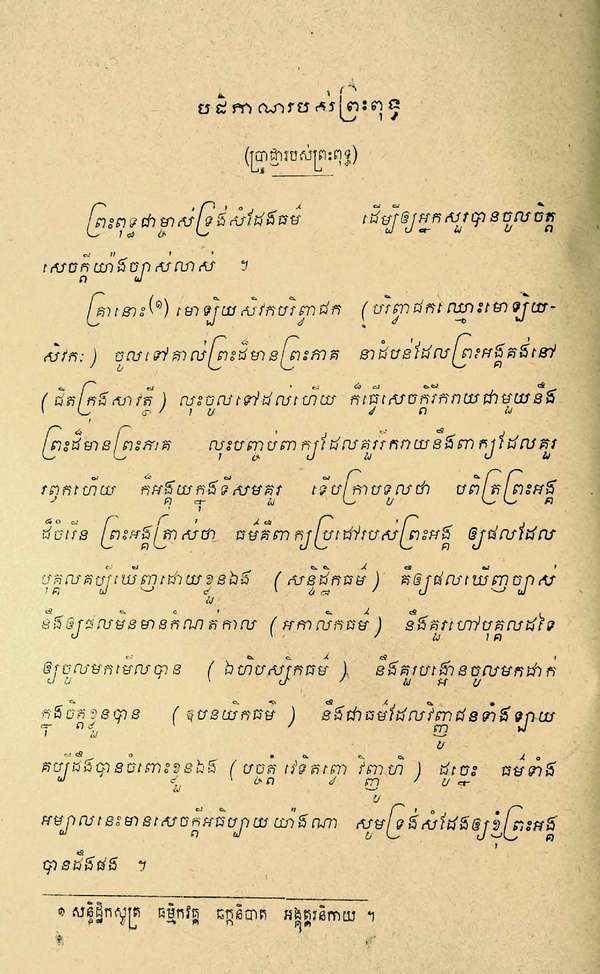 បដិភាណរបស់ព្រះពុទ្ធ
(ប្រាជ្ញារបស់ព្រះពុទ្ធ)
ព្រះពុទ្ធជាម្ចាស់ទ្រង់សំដែងធម៌ ដើម្បីឲ្យអ្នកសួរបានចូលចិត្ត
សេចក្ដីយ៉ាងច្បាស់លាស់ ។
គ្រានោះ(១) មោឡិយសិវកបរិព្វាជក (បរិព្វាជកឈ្មោះមោឡិយ-
សិវកៈ) ចូលទៅគាល់ព្រះដ៏មានព្រះភាគ នាដំបន់ដែលព្រះអង្គគង់នៅ
(ជិតក្រុងសាវត្ថី) លុះចូលទៅដល់ហើយ ក៏ធ្វើសេចក្ដីរីករាយជាមួយនឹង
ព្រះដ៏មានព្រះភាគ លុះបញ្ចប់ពាក្យដែលគួររីករាយនឹងពាក្យដែលគួរ
រឭកហើយ ក៏អង្គុយក្នុងទីសមគួរ ទើបក្រាបទូលថា បពិត្រព្រះអង្គ
ដ៏ចំរើន ព្រះអង្គត្រាស់ថា ធម៌គឺពាក្យប្រដៅរបស់ព្រះអង្គ ឲ្យផលដែល
បុគ្គលគប្បីឃើញដោយខ្លួនឯង (សន្ទិដ្ឋិកធម៌) គឺឲ្យផលឃើញច្បាស់
នឹងឲ្យផលមិនមានកំណត់កាល (អកាលិកធម៌) នឹងគួរហៅបុគ្គលដទៃ
ឲ្យចូលមកមើលបាន (ឯហិបស្សិកធម៌) នឹងគួរបង្អោនចូលមកដាក់
ក្នុងចិត្តខ្លួនបាន (ឱបនយិកធម៌) នឹងជាធម៌ដែលវិញ្ញូជនទាំងឡាយ
គប្បីដឹងបានចំពោះខ្លួនឯង (បច្ចត្តំ វេទិតព្វោ វិញ្ញូហិ) ដូច្នេះ ធម៌ទាំង
អម្បាលនេះមានសេចក្ដីអធិប្បាយយ៉ាងណា សូមទ្រង់សំដែងឲ្យខ្ញុំព្រះអង្គ
បានដឹងផង ។
១ សន្ទិដ្ឋិកសូត្រ ធម្មិកវគ្គ ឆក្កនិបាត អង្គុត្តរនិកាយ ។